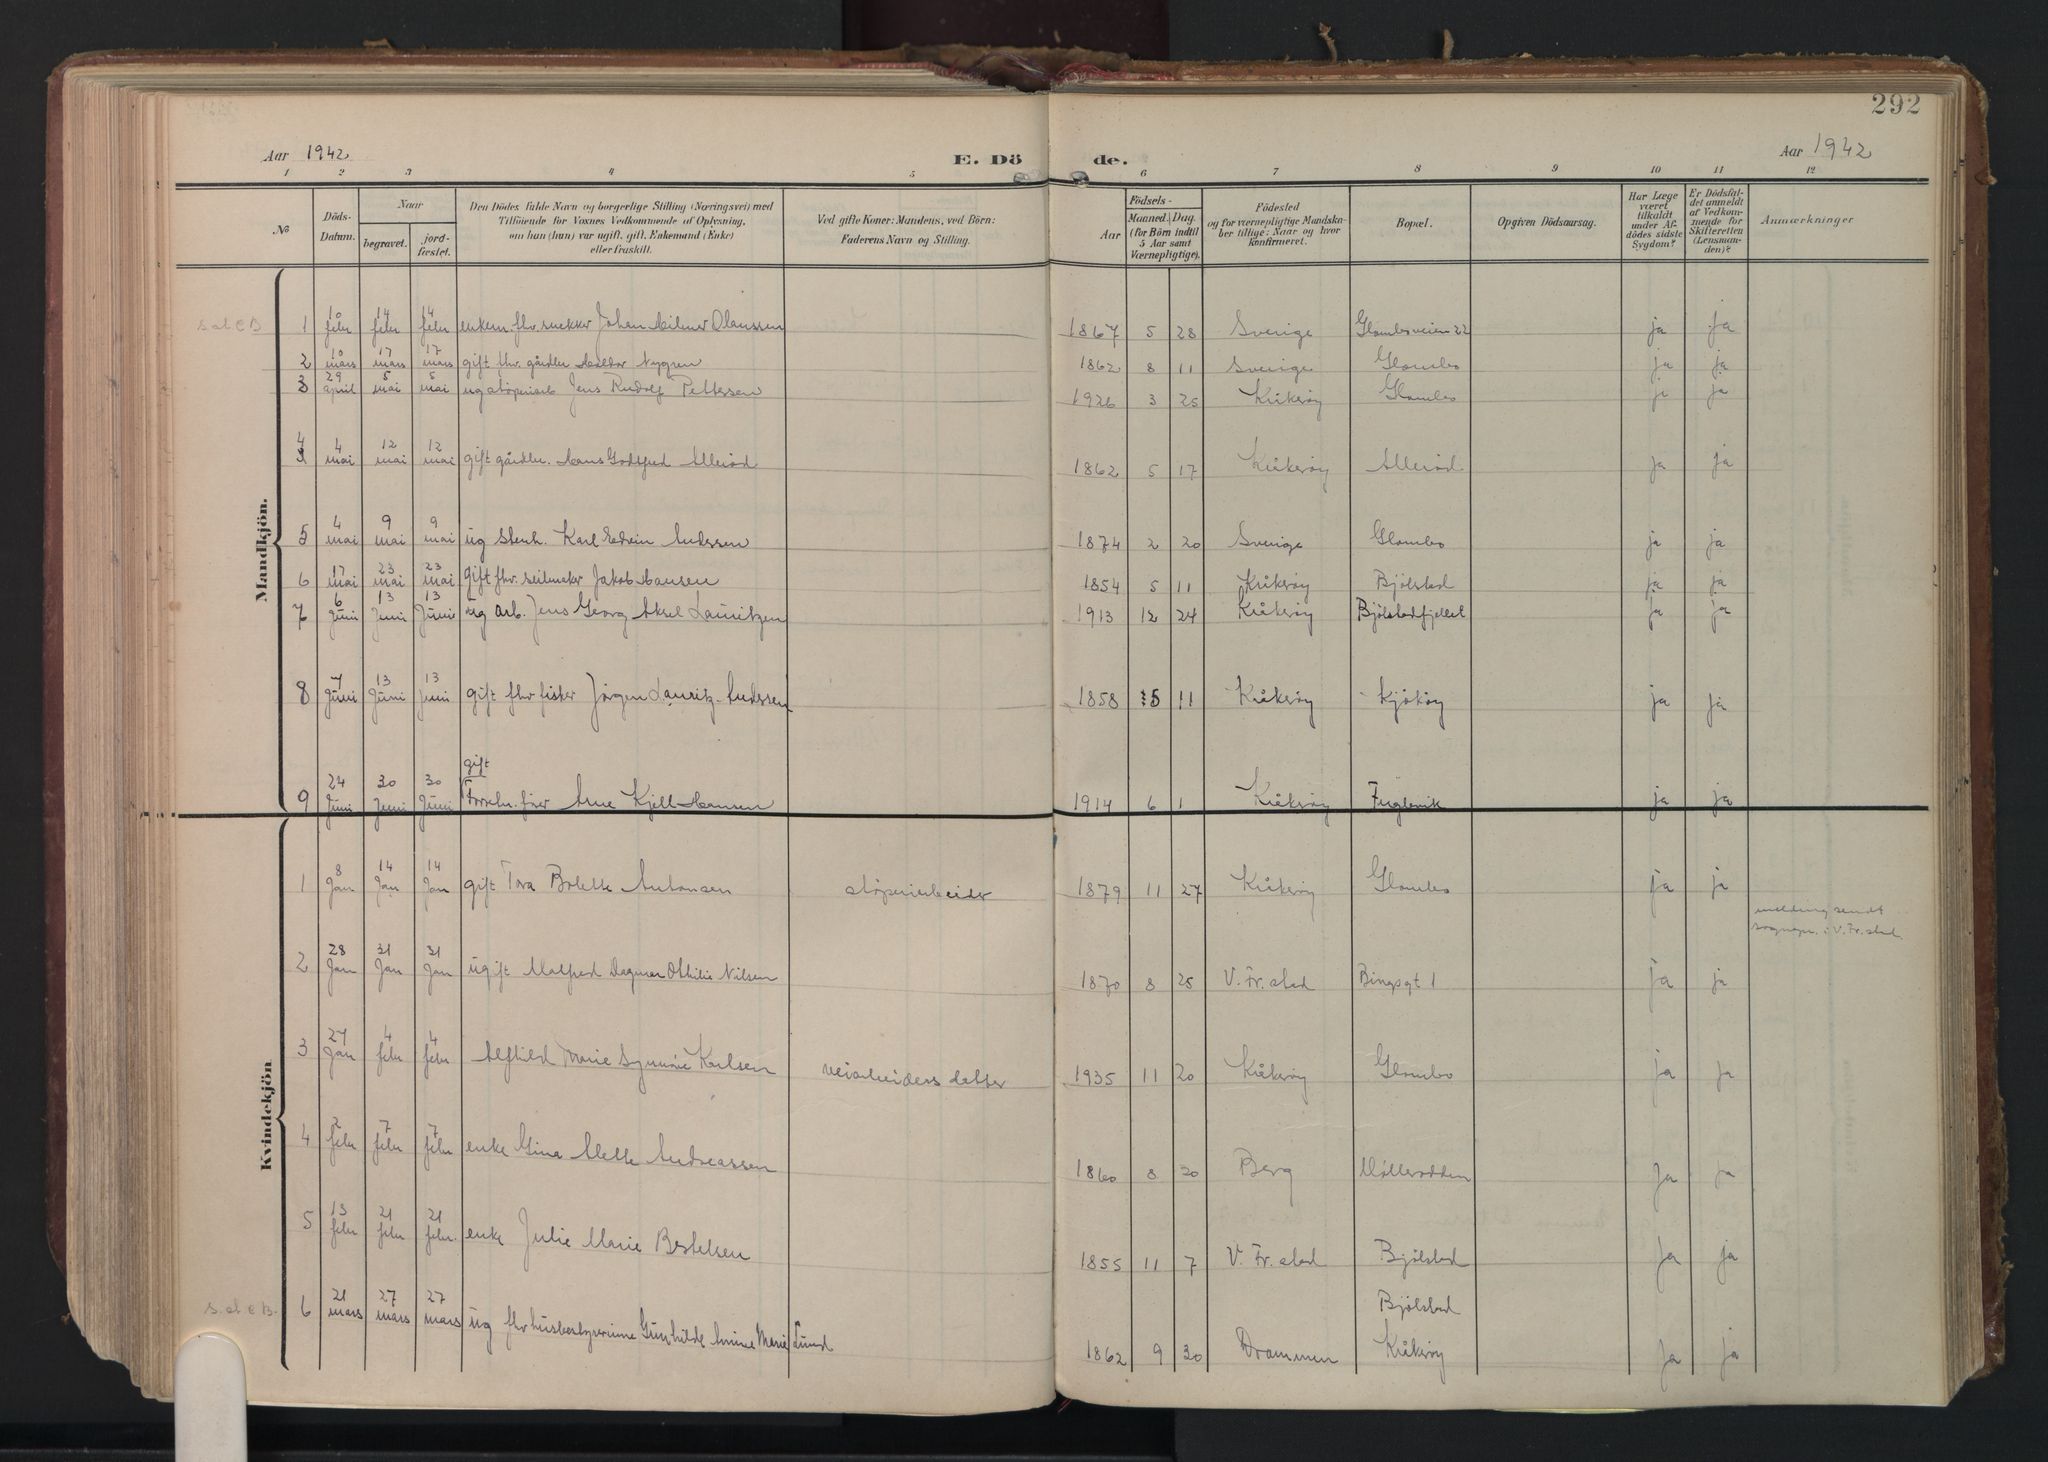 292
Aar 1942
E. Dö de.
Aar 1942
1 2 3 4 5 6 7 8 9 10 11 12
No
Döds-Datum.
Naar
begravet.
jord-fæstet.
Den Dödes fulde Navn og borgerlige Stilling (Næringsvei) med
Tilföiende for Voxnes Vedkommende af Oplysning,
om han (hun) var ugift, gift, Enkemand (Enke)
eller fraskilt.
Ved gifte Koner: Mandens, ved Börn:
Faderens Navn og Stilling.
Födsels-
Aar
Maaned. Dag.
(for Börn indtil
5 Aar samt
Værnepligtige).
Födested
og for værnepligtige Mandska-
ber tillige: Naar og hvor
konfirmeret.
Bopæl.
Opgiven Dödsaarsag.
Har Læge
været
tilkaldt
under Af-
dödes sidste
Sygdom?
Er Dödsfal-
det anmeldt
af Vedkom-
mende for
Skifteretten
(Lensman-
den)?
Anmærkninger
Mandkjön.
1 10 febr 14 febr 14 febr enkem. fhv. snekker Johan Hilmer Olaussen 1867 5 28 Sverige Glomboveien 22 ja ja
2 10 mars 17 mars 17 mars gift fhv. gårdbr Nygren 1862 8 11 Sverige Glombo ja ja
3 29 april 5 mai 5 mai ug støperiarb Jens Rudolf Pettersen 1926 3 25 Kråkerøy Glombo ja ja
4 4 mai 12 mai 12 mai gift gårdbr. Hans Godtfred Allerød 1862 5 17 Kråkerøy Allerød ja ja
5 4 mai 9 mai 9 mai ug Stenh. Karl Edvin Andersen 1874 2 20 Sverige Glombo ja ja
6 17 mai 23 mai 23 mai gift fhv. seilmaker Jakob Hansen 1854 5 11 Kråkerøy Bjølstad ja ja
7 6 Juni 13 Juni 13 Juni ug arb. Jens Georg Aksel Lauritzen 1913 12 24 Kråkerøy Bjølstadfjellet ja ja
8 7 Juni 13 Juni 13 Juni gift fhv fisker Jørgen Lauritz Andersen 1858 5 11 Kråkerøy Kjøkøy ja ja
9 24 Juni 30 Juni 30 Juni gift Arne Kjell Hansen 1914 6 1 Kråkerøy Fuglevik ja ja
Kvindekjön
1 8 Jan 14 Jan 14 Jan gift Tora Bolette Antonsen støperiarbeider 1879 11 27 Kråkerøy Glombo ja ja
melding sendt
sognepr. i V. Fr.stad.
2 28 Jan 31 Jan 31 Jan ugift Malfred Dagmar Othilie Nilsen 1870 8 25 V. Fr.stad Bingsgt 1 ja ja
3 27 Jan 4 febr 4 febr Alfhild Marie Synnøve Karlsen veiarbeiders datter 1935 11 20 Kråkerøy Glombo ja ja
4 2 febr 7 febr 7 febr enke Gina Mette Andreassen 1860 8 20 Berg Møllerodden ja ja
5 13 febr 21 febr 21 febr. enke Julie Marie Bertelsen 1855 11 7 V. Fr.stad Bjølstad ja ja
6 21 mars 27 mars 27 mars ug fhv husbestyrerinne Gunhilde Amine Marie Lund 1862 9 30 Drammen Bjølstad Kråkerøy ja ja